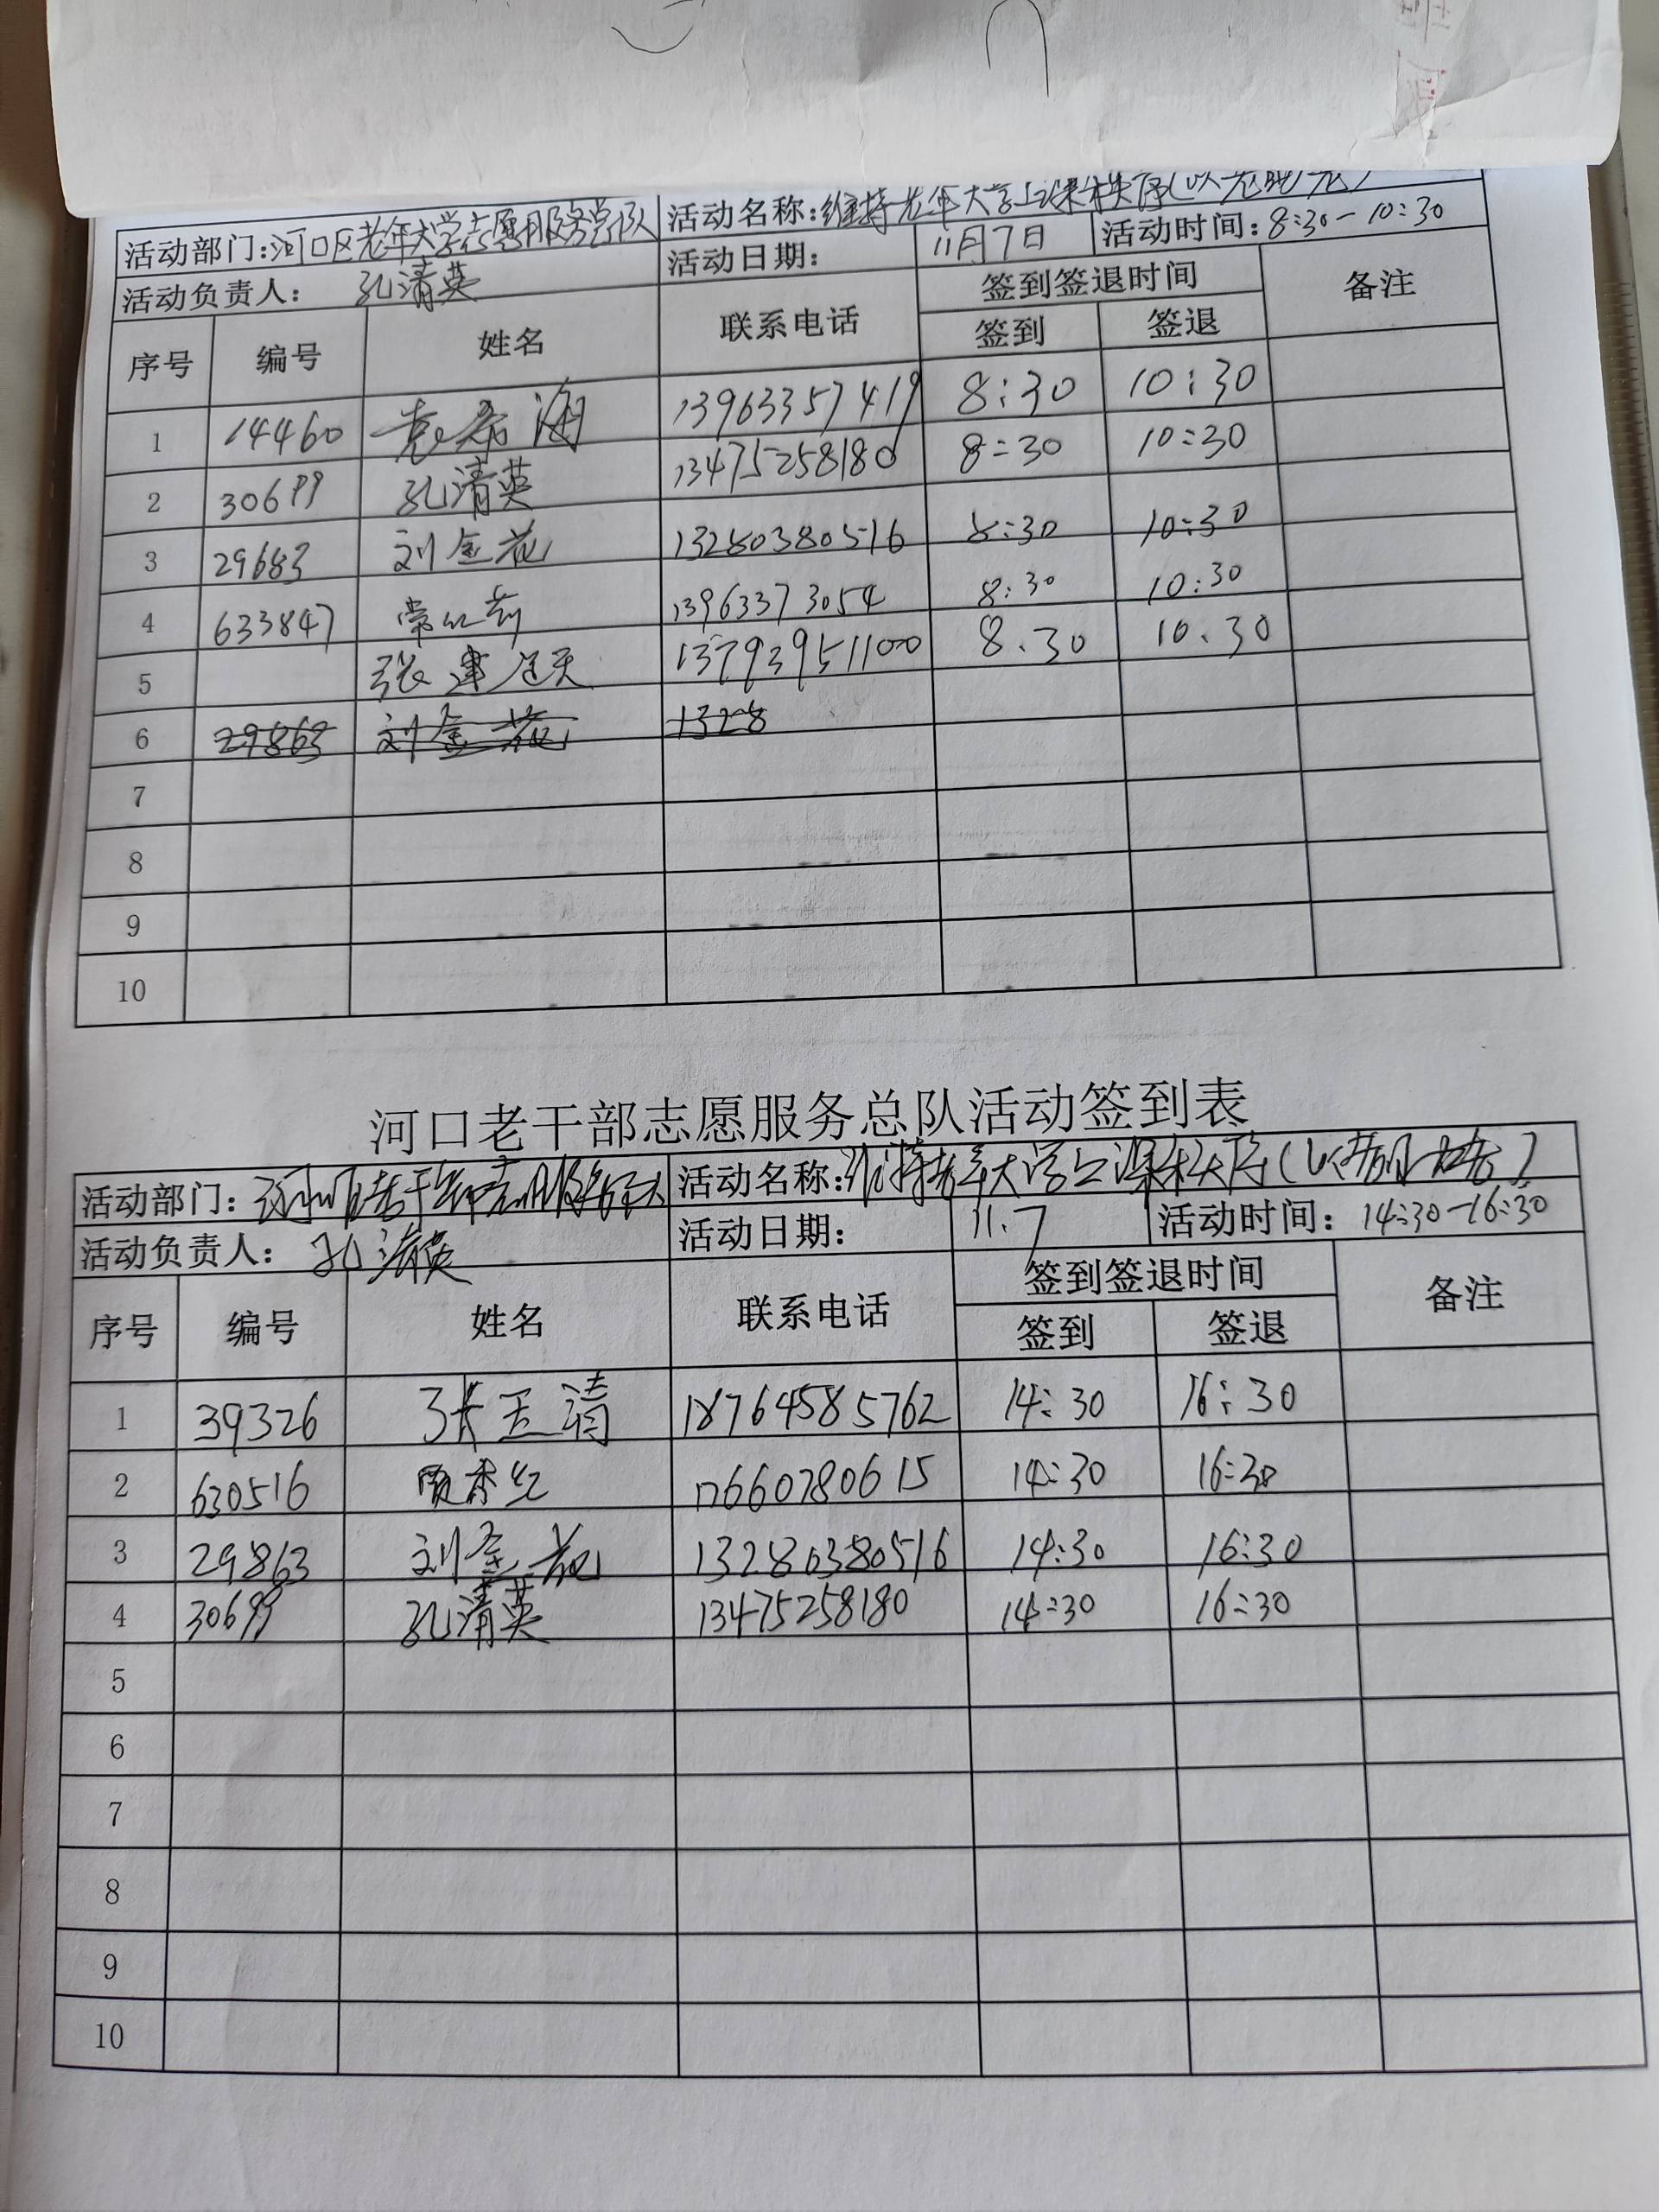 活动部门:河口区老年大学志愿服务总队 活动名称:维持老年大学上课秩序(以老助老)
活动负责人: 孔清英 活动日期: 11月7日 活动时间:8:30-10:30
序号 编号 姓名 联系电话 签到签退时间 备注
签到 签退
1 14460 袁希海 13963357419 8:30 10:30
2 30699 孔清英 13475258180 8:30 10:30
3 29683 刘金花 13280380516 8:30 10:30
4 633847 常红 13963373054 8:30 10:30
5 张建 13793951100 8.30 10.30
6 29863 刘金花 1328
7
8
9
10
河口老干部志愿服务总队活动签到表
活动部门: 老干部志愿服务 活动名称:维持老年大学上课秩序
活动负责人: 孔清英 活动日期: 11.7 活动时间: 14:30-16:30
序号 编号 姓名 联系电话 签到签退时间 备注
签到 签退
1 39326 张玉清 18764585762 14:30 16:30
2 630516 17660780615 14:30 16:30
3 29863 刘金花 13280380516 14:30 16:30
4 30699 孔清英 13475258180 14:30 16:30
5
6
7
8
9
10